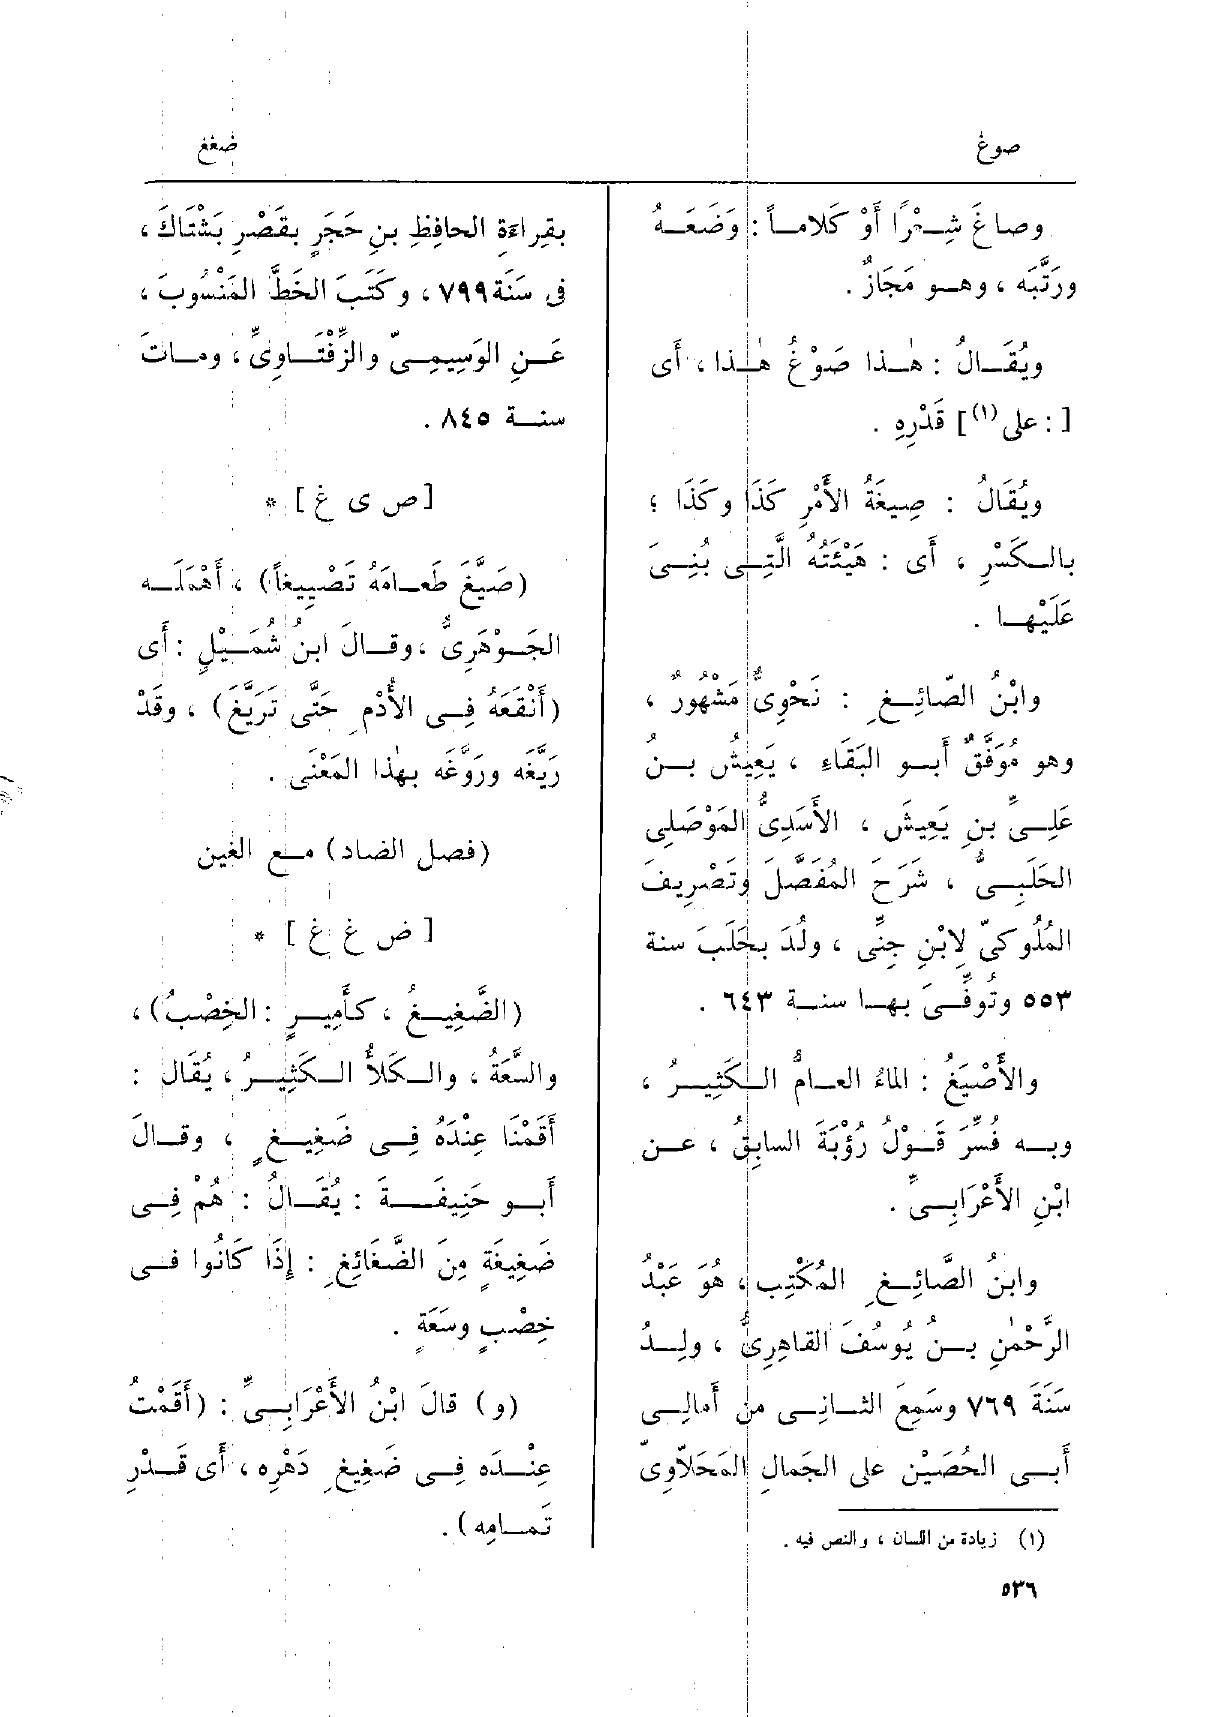 صوغ
ضغغ
وصاغَ شِعْرًا أَوْ كَلاماً : وَضَعَهُ
ورَتَّبَه ، وهو مَجَازٌ .
ويُقَالُ : هٰذا صَوْغُ هٰذا ، أَى
[ : على (١) ] قَدْرِهِ .
ويُقَالُ : صِيغَةُ الأَمْرِ كَذَا وكَذَا ؛
بالكَسْرِ ، أَى : هَيْئَتُهُ الَّتِى بُنِىَ
عَلَيْها .
وابْنُ الصّائِغِ : نَحْوِىٌّ مَشْهُورٌ ،
وهو مُوَفَّقٌ أَبو البَقَاءِ ، يَعِيشُ بنُ
عَلِىِّ بنِ يَعِيشَ ، الأَسَدِىُّ المَوْصَلِى
الحَلَبِىُّ ، شَرَحَ المُفَصَّلَ وتَصْرِيفَ
المُلُوكىّ لِابْنِ جِنِّى ، ولُدَ بحَلَبَ سنة
٥٥٣ وتُوفِّىَ بها سنة ٦٤٣ .
والأَصْيَغُ : الماءُ العامُّ الكَثِيرُ ،
وبه فُسِّرَ قَوْلُ رُؤْبَةَ السابِقُ ، عن
ابْنِ الأَعْرَابِىِّ .
وابنُ الصَّائِغِ المُكْتِب ، هُوَ عَبْدُ
الرَّحْمٰنِ بنُ يُوسُفَ القاهِرِىُّ ، ولِدُ
سَنَةَ ٧٦٩ وسَمِعَ الثانِى من أَمالِى
أَبى الحُصَيْن على الجَمالِ المَحَلاّوِىّ
(١) زيادة من اللسان ، والنص فيه .
بقِراءَةِ الحافِظِ بنِ حَجَرٍ بقَصْرِ بَشْتَاكَ ،
فى سَنَة ٧٩٩ ، وكَتَبَ الخَطَّ المَنْسُوبَ ،
عَنِ الوَسِيمِىّ والزِّفْتَاوِىِّ ، وماتَ
سنة ٨٤٥ .
[ ص ى غ ] *
(صَيَّغَ طَعامَهُ تَصْيِيغاً) ، أَهْمَلَه
الجَوْهَرِىُّ ، وقالَ ابنُ شُمَيْلٍ : أَى
(أَنْقَعَهُ فِى الأُدْمِ حَتَّى تَرَيَّغَ) ، وقَدْ
رَيَّغَه ورَوَّغَه بهٰذا المَعْنَى .
(فصل الضاد) مع الغين
[ ض غ غ ] *
(الضَّغِيغُ ، كأَمِيرٍ : الخِصْبُ) ،
والسَّعَةُ ، والكَلأُ الكَثِيرُ ، يُقَالُ :
أَقَمْنَا عِنْدَهُ فِى ضَغِيغٍ ، وقالَ
أَبو حَنِيفَةَ : يُقَالُ : هُمْ فِى
ضَغِيغَةٍ مِنَ الضَّغَائِغِ : إِذَا كَانُوا فى
خِصْبٍ وسَعَةٍ .
(و) قالَ ابْنُ الأَعْرَابِىِّ : (أَقَمْتُ
عِنْدَه فِى ضَغِيغِ دَهْرِه ، أَى قَدْرِ
تَمامِه ) .
٥٣٦